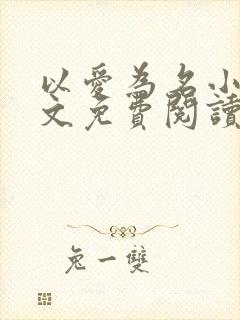 以愛為名小
文免費閱讀
兔一雙